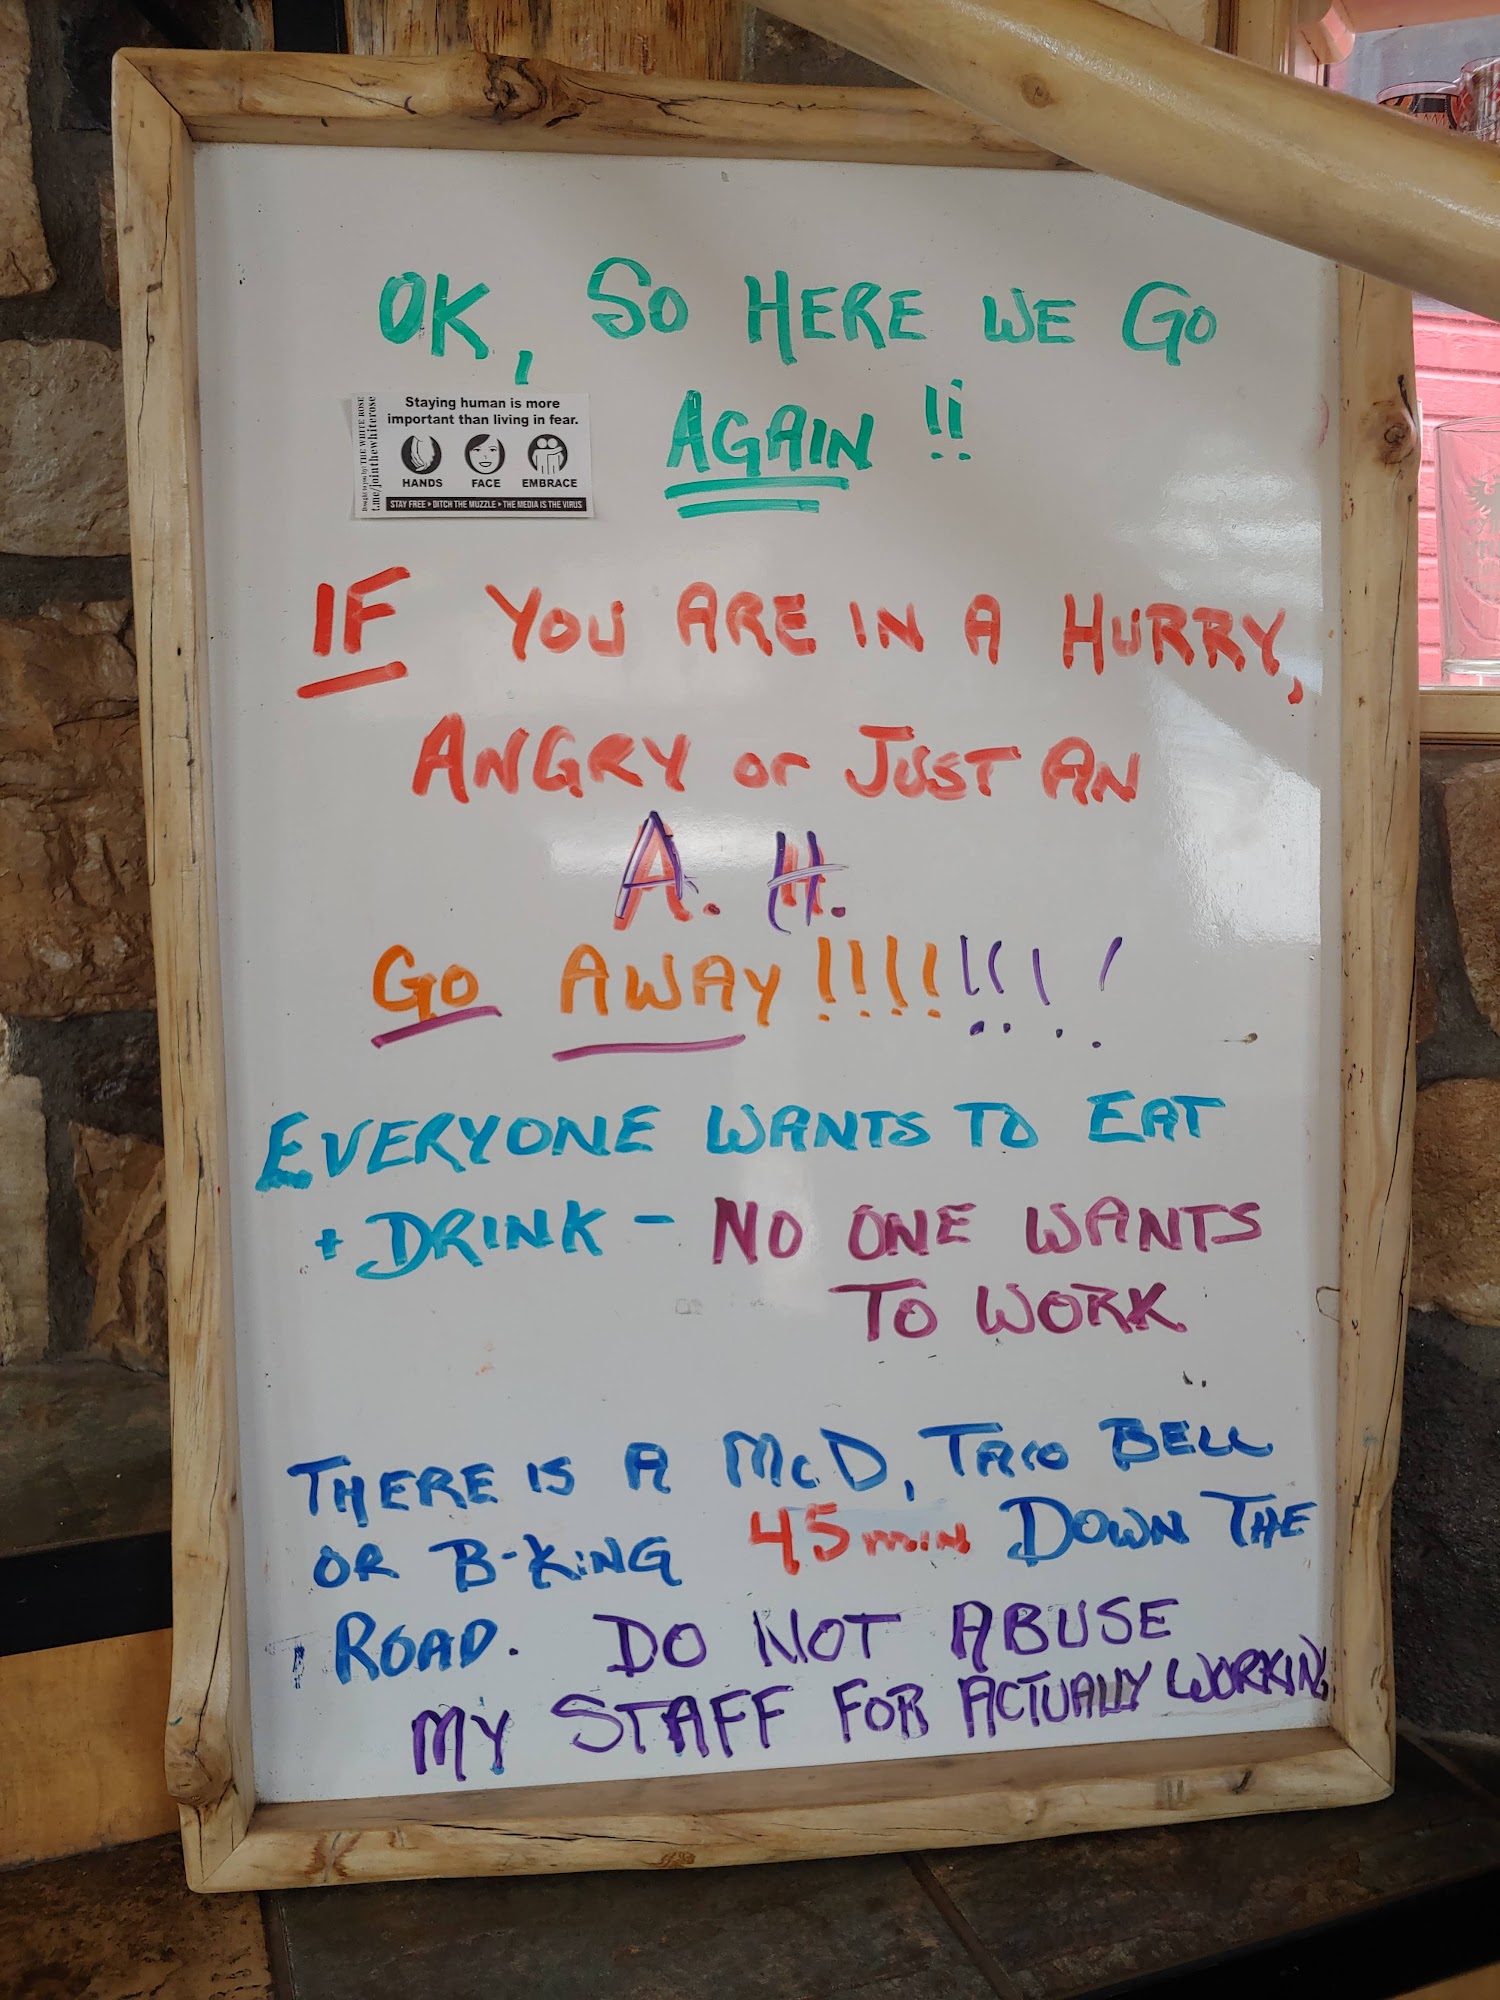 OK, SO HERE WE GO
AGAIN !!
Staying human is more
important than living in fear.
HANDS FACE EMBRACE
STAY FREE • DITCH THE MUZZLE • THE MEDIA IS THE VIRUS
Brought to you by: THE WHITE ROSE
t.me/jointhewhiterose
IF YOU ARE IN A HURRY,
ANGRY or JUST AN
A. H.
GO AWAY !!!!!!!!
EVERYONE WANTS TO EAT
+ DRINK - NO ONE WANTS
TO WORK
THERE IS A McD, TACO BELL
OR B-KiNG 45min DOWN THE
ROAD. DO NOT ABUSE
MY STAFF FOR ACTUALLY WORKING